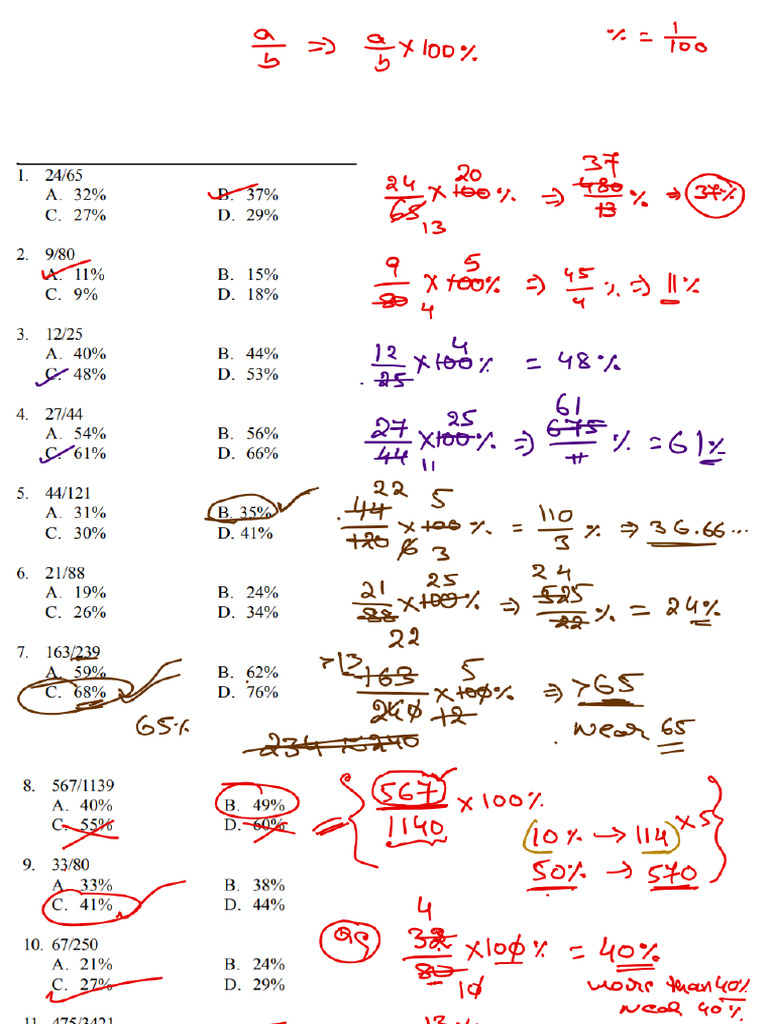 a/b ⇒ a/b × 100% % = 1/100
1. 24/65
A. 32% B. 37%
C. 27% D. 29%
24/65 × 100% 20 13 ⇒ 480/13 % 37 ⇒ 37%
2. 9/80
A. 11% B. 15%
C. 9% D. 18%
9/80 × 100% 5 4 ⇒ 45/4 % ⇒ 11%
3. 12/25
A. 40% B. 44%
C. 48% D. 53%
12/25 × 100% 4 = 48%
4. 27/44
A. 54% B. 56%
C. 61% D. 66%
27/44 × 100% 25 11 ⇒ 675/11 % 61 = 61%
5. 44/121
A. 31% B. 35%
C. 30% D. 41%
44/120 × 100% 22 5 6 3 = 110/3 % ⇒ 36.66...
6. 21/88
A. 19% B. 24%
C. 26% D. 34%
21/88 × 100% 25 22 ⇒ 525/22 % 24 = 24%
7. 163/239
A. 59% B. 62%
C. 68% D. 76%
65%
>13 163/240 × 100% 5 12 ⇒ >65
near 65
8. 567/1139
A. 40% B. 49%
C. 55% D. 60%
567/1140 × 100%
10% → 114 × 5
50% → 570
9. 33/80
A. 33% B. 38%
C. 41% D. 44%
10. 67/250
A. 21% B. 24%
C. 27% D. 29%
Q9 32/80 × 100% 4 10 = 40%
more than 40%
near 40%
11. 475/3421
13